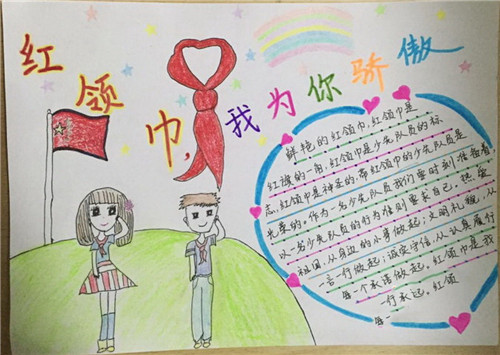 红领巾,我为你骄傲
鲜艳的红领巾,红领巾是
红旗的一角,红领巾是少先队员的标
志,红领巾是神圣的,带红领巾的少先队员是
光荣的。作为一名少先队员我们要时刻准备着,
以一名少先队员的行为准则要求自己。热爱
祖国,从身边的小事做起;文明礼貌,从
一言一行做起;诚实守信,从认真履行
每一个承诺做起。红领巾是我
行永远。红领